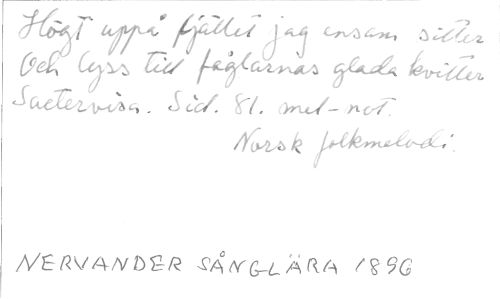 Högt uppå fjället jag ensam sitter
Och lyss till fåglarnas glada kvitter
Saetervisa. Sid. 81. mel-not.
Norsk folkmelodi.
NERVANDER SÅNGLÄRA 1896